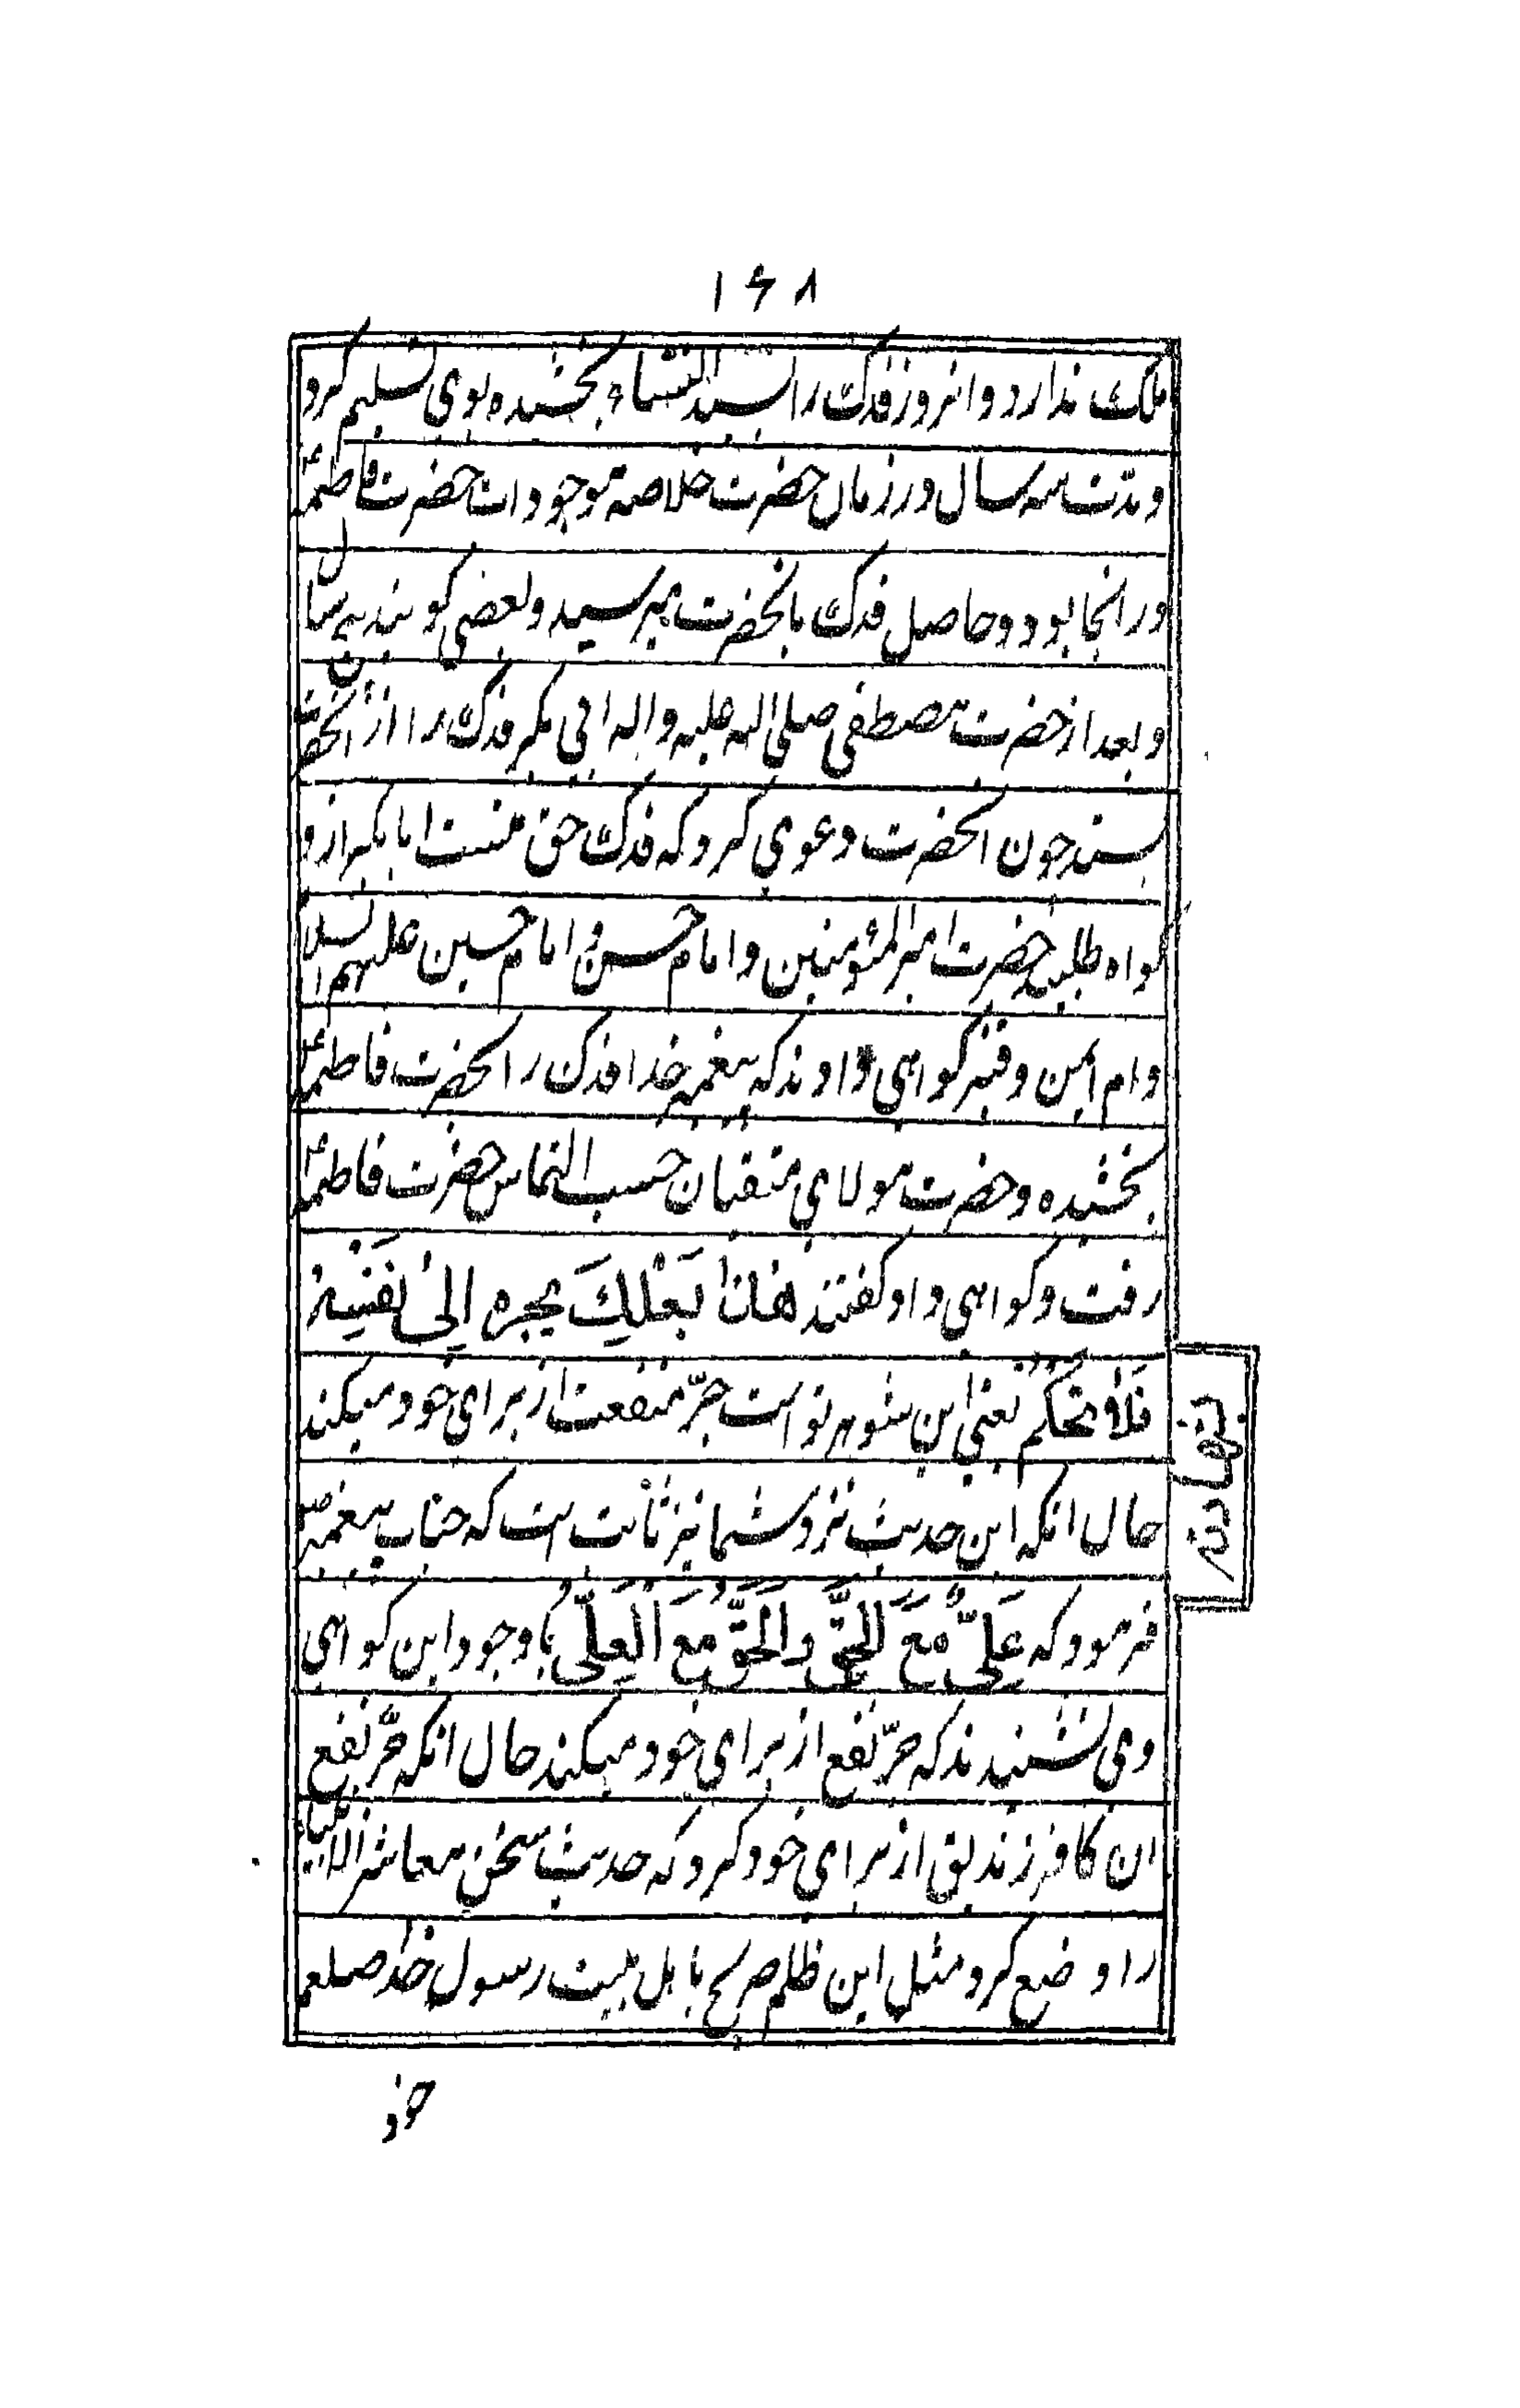 ۱۶۸
ملک ندارد و انروز فدک را بسید النساء بخشیده بوی تسلیم کرد
و مدّت سه سال در زمان حضرت خلاصه موجودات حضرت فاطمهؑ
در انجا بود و حاصل فدک بانحضرت میرسید و بعضی کویند پنج سال
و بعد از حضرت مصطفی صلی الله علیه و اله ابی بکر فدک را از انحضرت
بستد چون انحضرت دعوی کرد که فدک حق منست ابا بکر ازو
کواه طلبید حضرت امیر المئومنین و امام حسن و امام حسین علیهم السلا
و ام ایمن و قنبر کواهی دادند که پیغمبر خدا فدک را بحضرت فاطمهؑ
بخشیده و حضرت مولای متقیان حسب التماس حضرت فاطمهؑ
رفت و کواهی داد کفتند هٰذا بَعْلِكَ یجره اِلیٰ نَفْسِهٖ
فَلاٰ نحکم یعنی این شوهر تو است جرّ منفعت از برای خود میکند
حال انکه این حدیث نزد شما نیز ثابت است که جناب پیغمبرص
فرمود که عَلِیٌّ مَعَ الْحَقِّ وَالْحَقُّ مَعَ الْعَلِیِّ با وجود این کواهی
وی نشنیدند که جرّ نفع از برای خود میکند حال انکه جرّ نفع
ان کافر زندیق از برای خود کرد که حدیث نحن معاشر الانبیاء
را وضع کرد مثل این ظلم صریح باهل بیت رسول خدا صلعم
خود